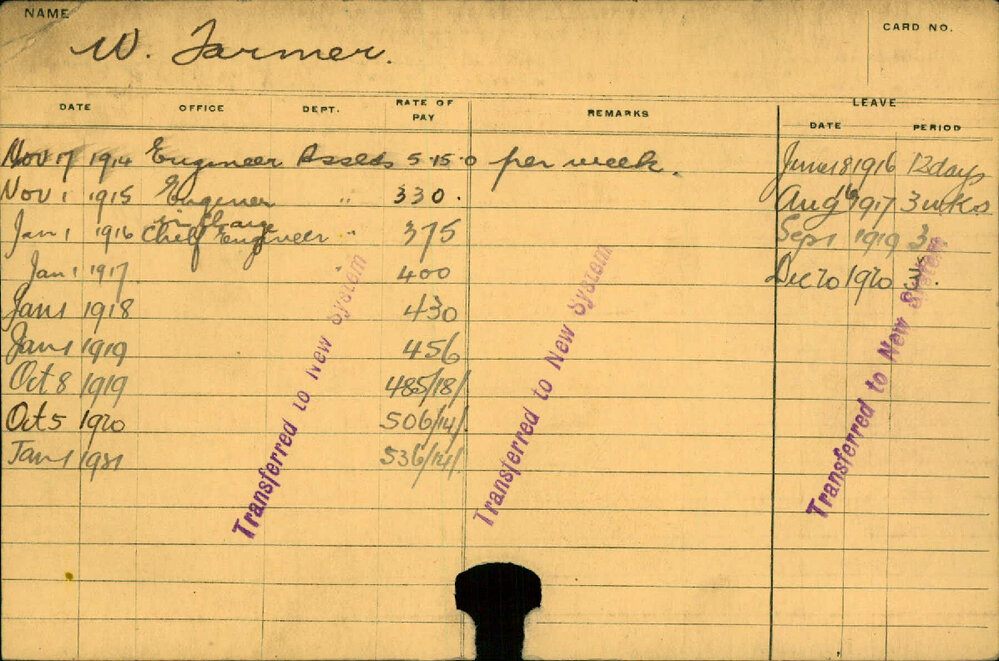 NAME
W. Farmer.
CARD NO.
DATE OFFICE DEPT. RATE OF PAY REMARKS LEAVE
DATE PERIOD
Nov 17 1914 Engineer Assets 5-15-0 per week. June 18 1916 12 days
Nov 1 1915 Engineer " 330. Aug 6 1917 3 wks
in Charge
Jan 1 1916 Chief Engineer " 375 Sept 1919 3
Jan 1 1917. 400 Dec 20 1920
Jan 1 1918 430
Jan 1 1919 456
Oct 8 1919 485/18/.
Oct 5 1920 506/14/.
Jan 1 1921 536/14/.
Transferred to New System
Transferred to New System
Transferred to New System